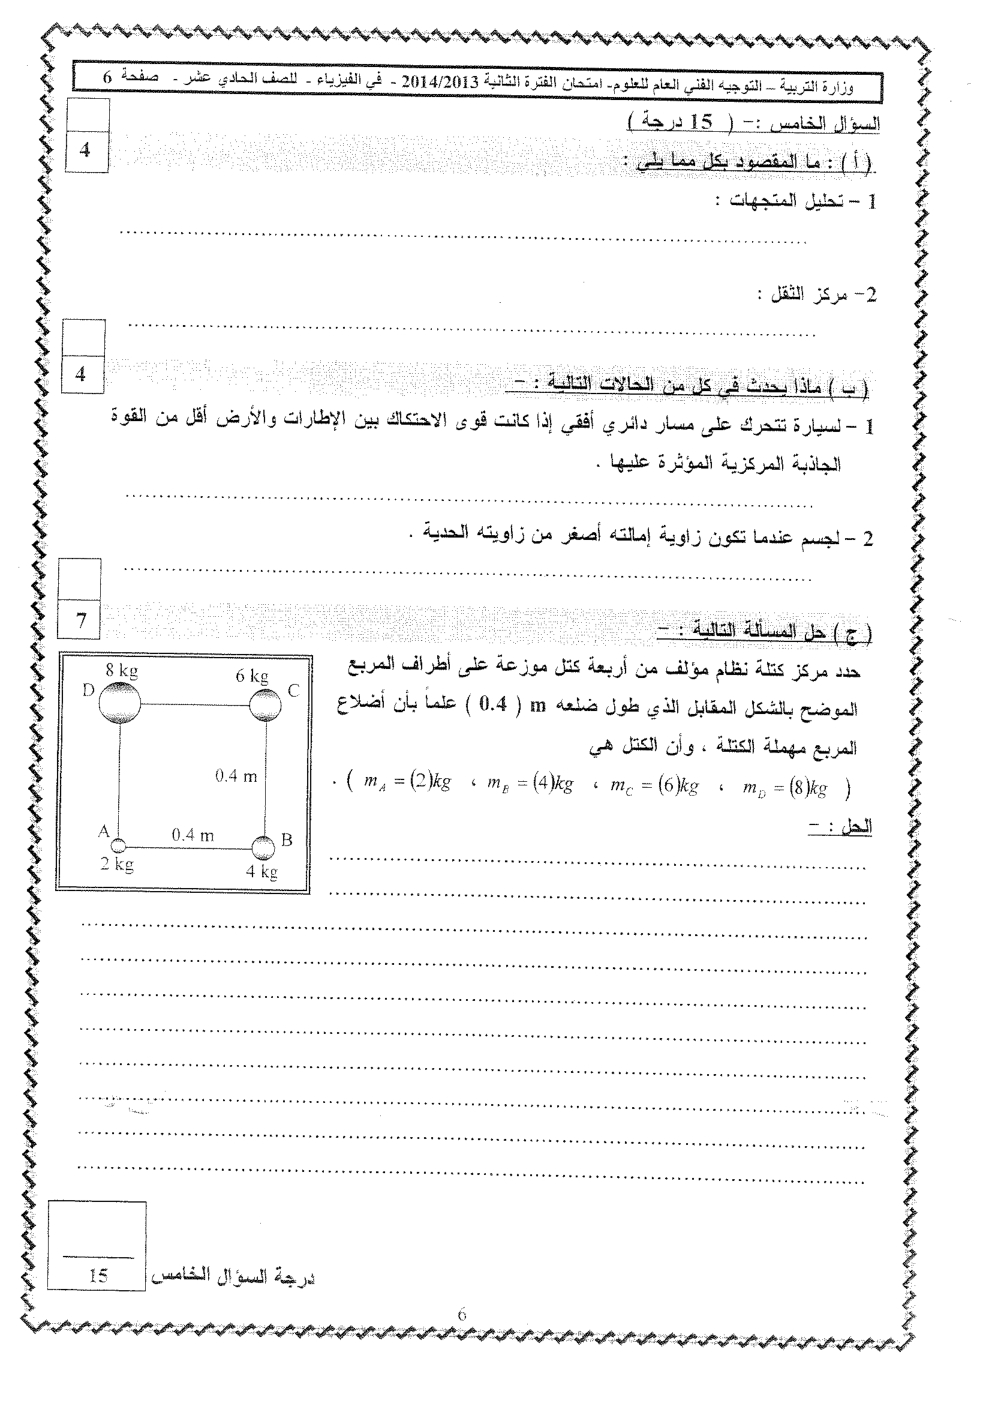 وزارة التربية – التوجيه الفني العام للعلوم- امتحان الفترة الثانية 2014/2013 - في الفيزياء - للصف الحادي عشر - صفحة 6
السؤال الخامس :- ( 15 درجة )
4
( أ ) : ما المقصود بكل مما يلي :
1 – تحليل المتجهات :
2- مركز الثقل :
4
( ب ) ماذا يحدث في كل من الحالات التالية : -
1 – لسيارة تتحرك على مسار دائري أفقي إذا كانت قوى الاحتكاك بين الإطارات والأرض أقل من القوة
الجاذبة المركزية المؤثرة عليها .
2 – لجسم عندما تكون زاوية إمالته أصغر من زاويته الحدية .
7
( ج ) حل المسألة التالية : -
حدد مركز كتلة نظام مؤلف من أربعة كتل موزعة على أطراف المربع
الموضح بالشكل المقابل الذي طول ضلعه m ( 0.4 ) علماً بأن أضلاع
المربع مهملة الكتلة ، وأن الكتل هي
( m_A = (2)kg ، m_B = (4)kg ، m_C = (6)kg ، m_D = (8)kg ) .
8 kg
6 kg
D
C
0.4 m
A
0.4 m
B
2 kg
4 kg
الحل : -
15
درجة السؤال الخامس
6